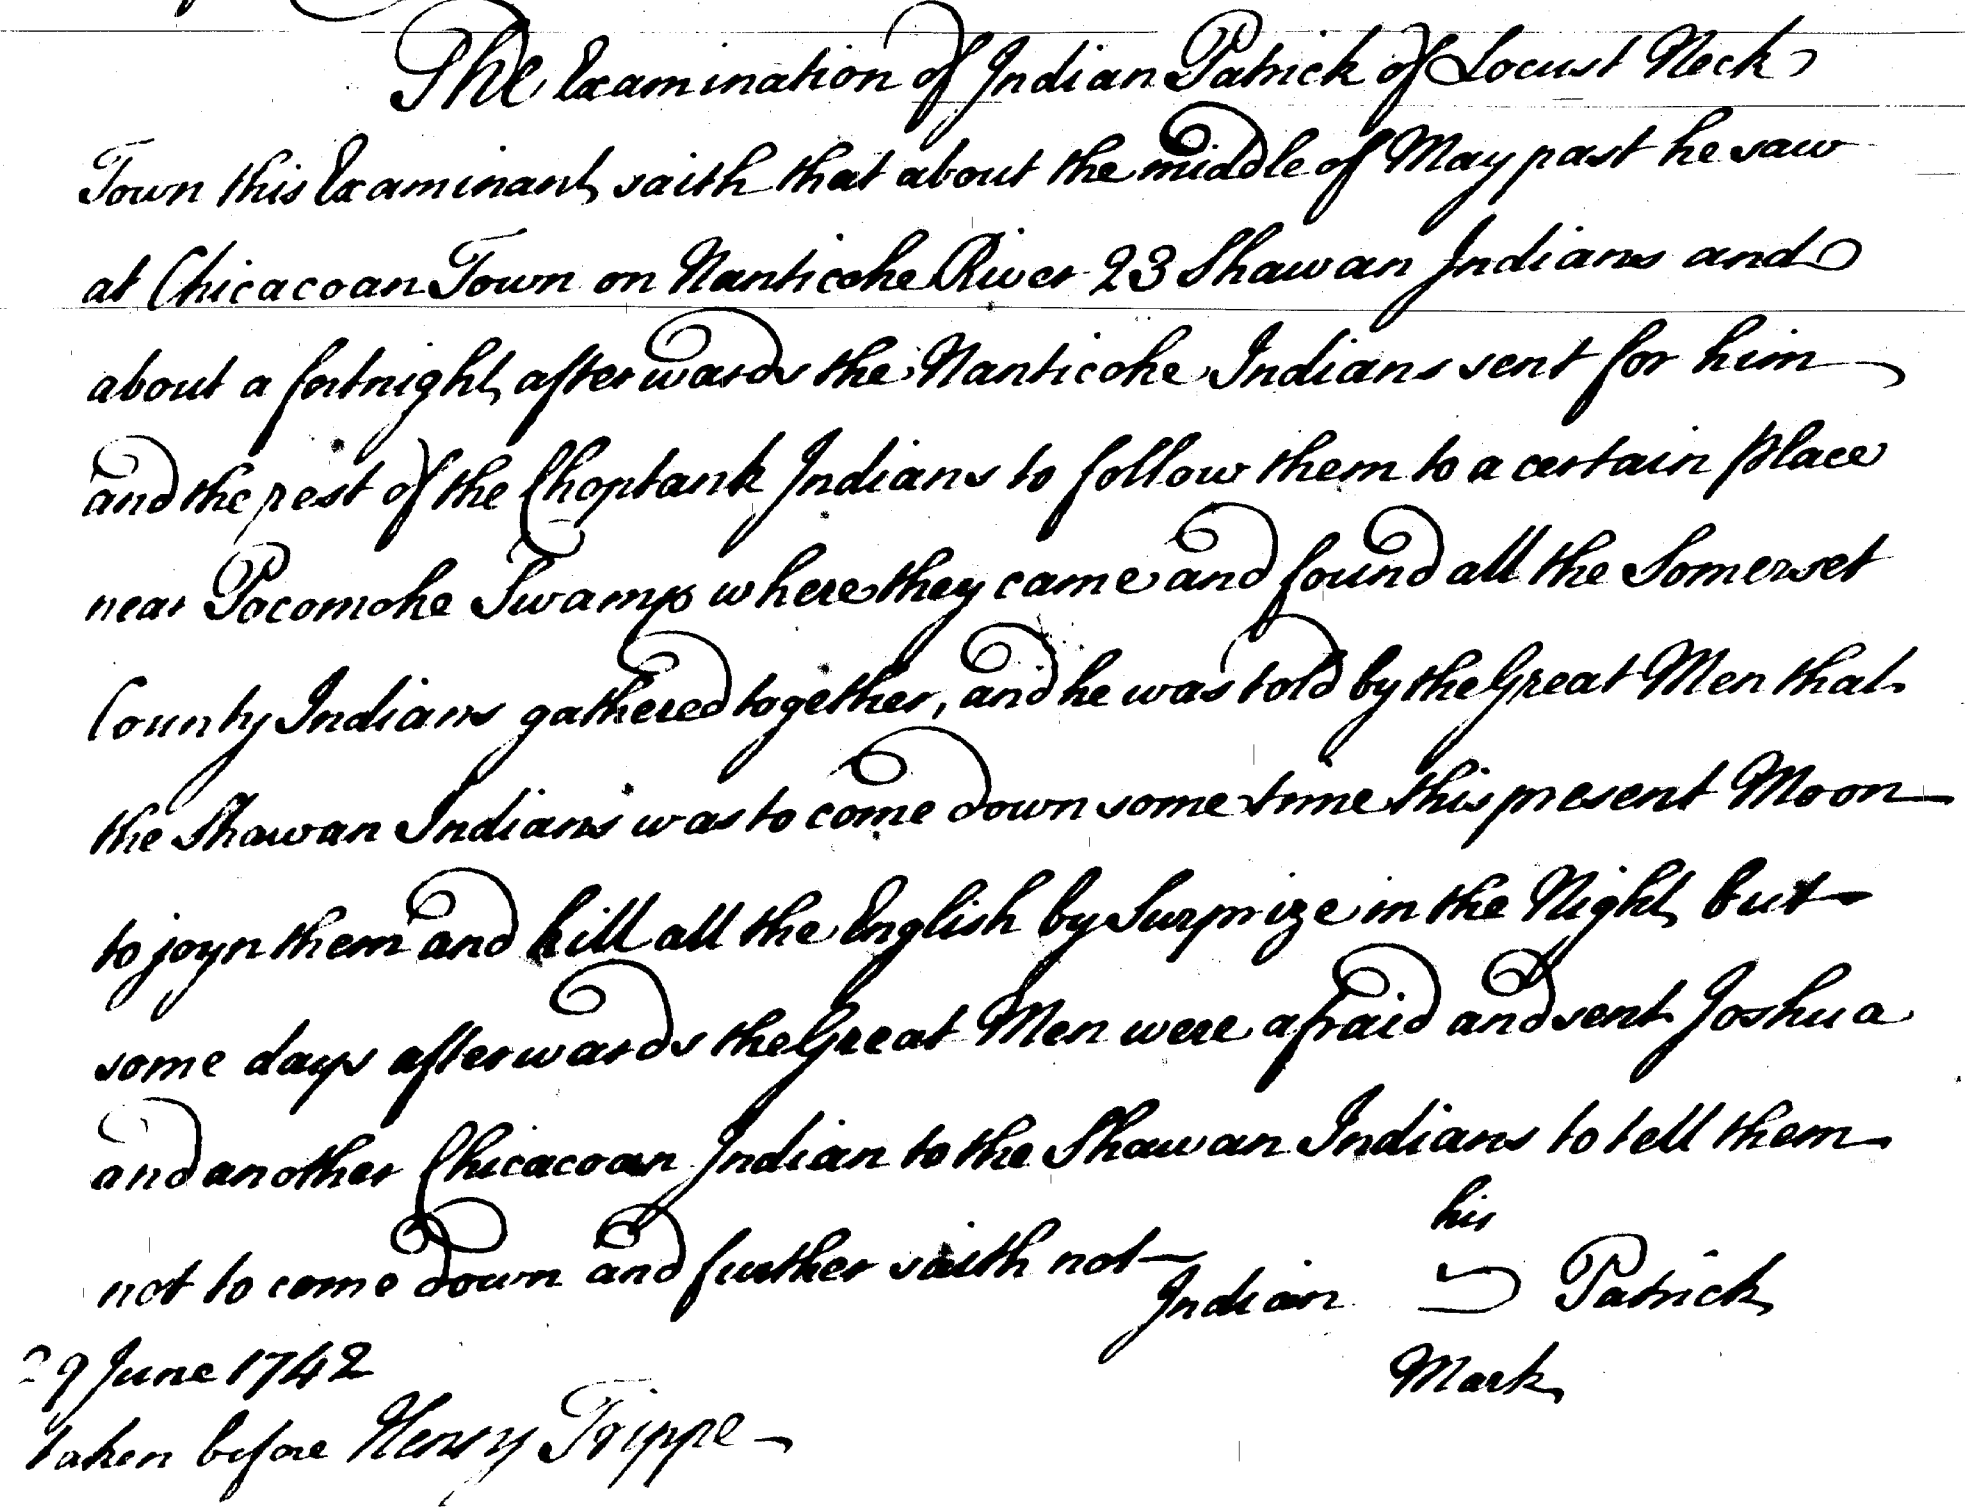 The Examination of Indian Patrick of Locust Neck
Town this Examinant saith that about the middle of May past he saw
at Chicacoan Town on Nanticoke River 23 Shawan Indians and
about a fortnight afterwards the Nanticoke Indians sent for him
and the rest of the Choptank Indians to follow them to a certain place
near Pocomoke Swamp where they came and found all the Somerset
County Indians gathered together, and he was told by the Great Men that
the Shawan Indians was to come down some time this present Moon
to joyn them and kill all the English by Surprize in the Night but
some days afterwards the Great Men were afraid and sent Joshua
and another Chicacoan Indian to the Shawan Indians to tell them
not to come down and further saith not
his
Indian Patrick
Mark
29 June 1742
taken before Henry Trippe